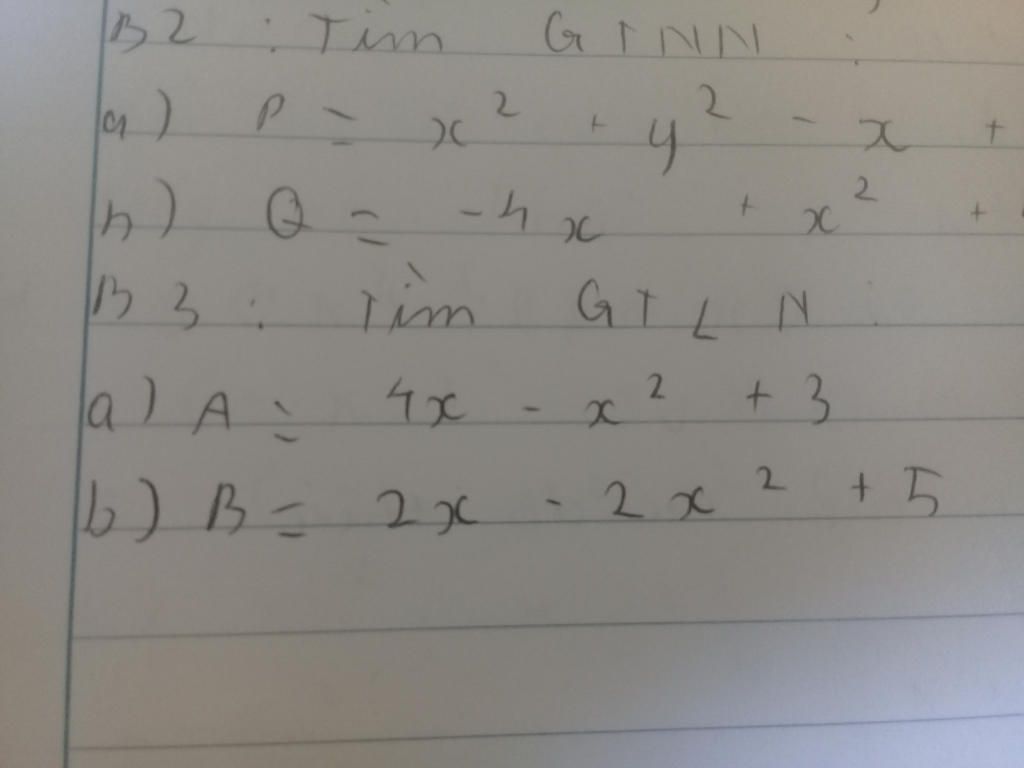 B2 : Tìm GTNN :
a) P = x² + y² - x +
b) Q = -4x + x² +
B3 : Tìm GTLN :
a) A = 4x - x² + 3
b) B = 2x - 2x² + 5